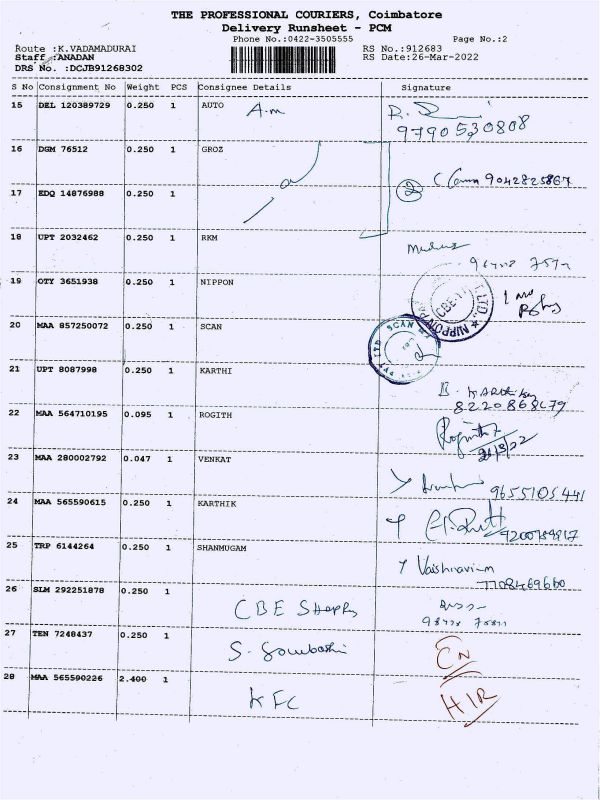 THE PROFESSIONAL COURIERS, Coimbatore
Delivery Runsheet - PCM
Phone No.:0422-3505555 Page No.:2
Route :K.VADAMADURAI RS No.:912683
Staff :ANADAN RS Date:26-Mar-2022
DRS No. :DCJB91268302
S No Consignment No Weight PCS Consignee Details Signature
15 DEL 120389729 0.250 1 AUTO A.m
9790530808
16 DGM 76512 0.250 1 GROZ
2 9042825867
17 EDQ 14876988 0.250 1
18 UPT 2032462 0.250 1 RKM
19 OTY 3651938 0.250 1 NIPPON
CBE-11 NIPPON LTD.
20 MAA 857250072 0.250 1 SCAN
SCAN PVT LTD
21 UPT 8087998 0.250 1 KARTHI
22 MAA 564710195 0.095 1 ROGITH
23 MAA 280002792 0.047 1 VENKAT
9655105441
24 MAA 565590615 0.250 1 KARTHIK
25 TRP 6144264 0.250 1 SHANMUGAM
Vaishnavi
7708469660
26 SLM 292251878 0.250 1 CBE
27 TEN 7248437 0.250 1 S.
EN
28 MAA 565590226 2.400 1 KFC
HIR